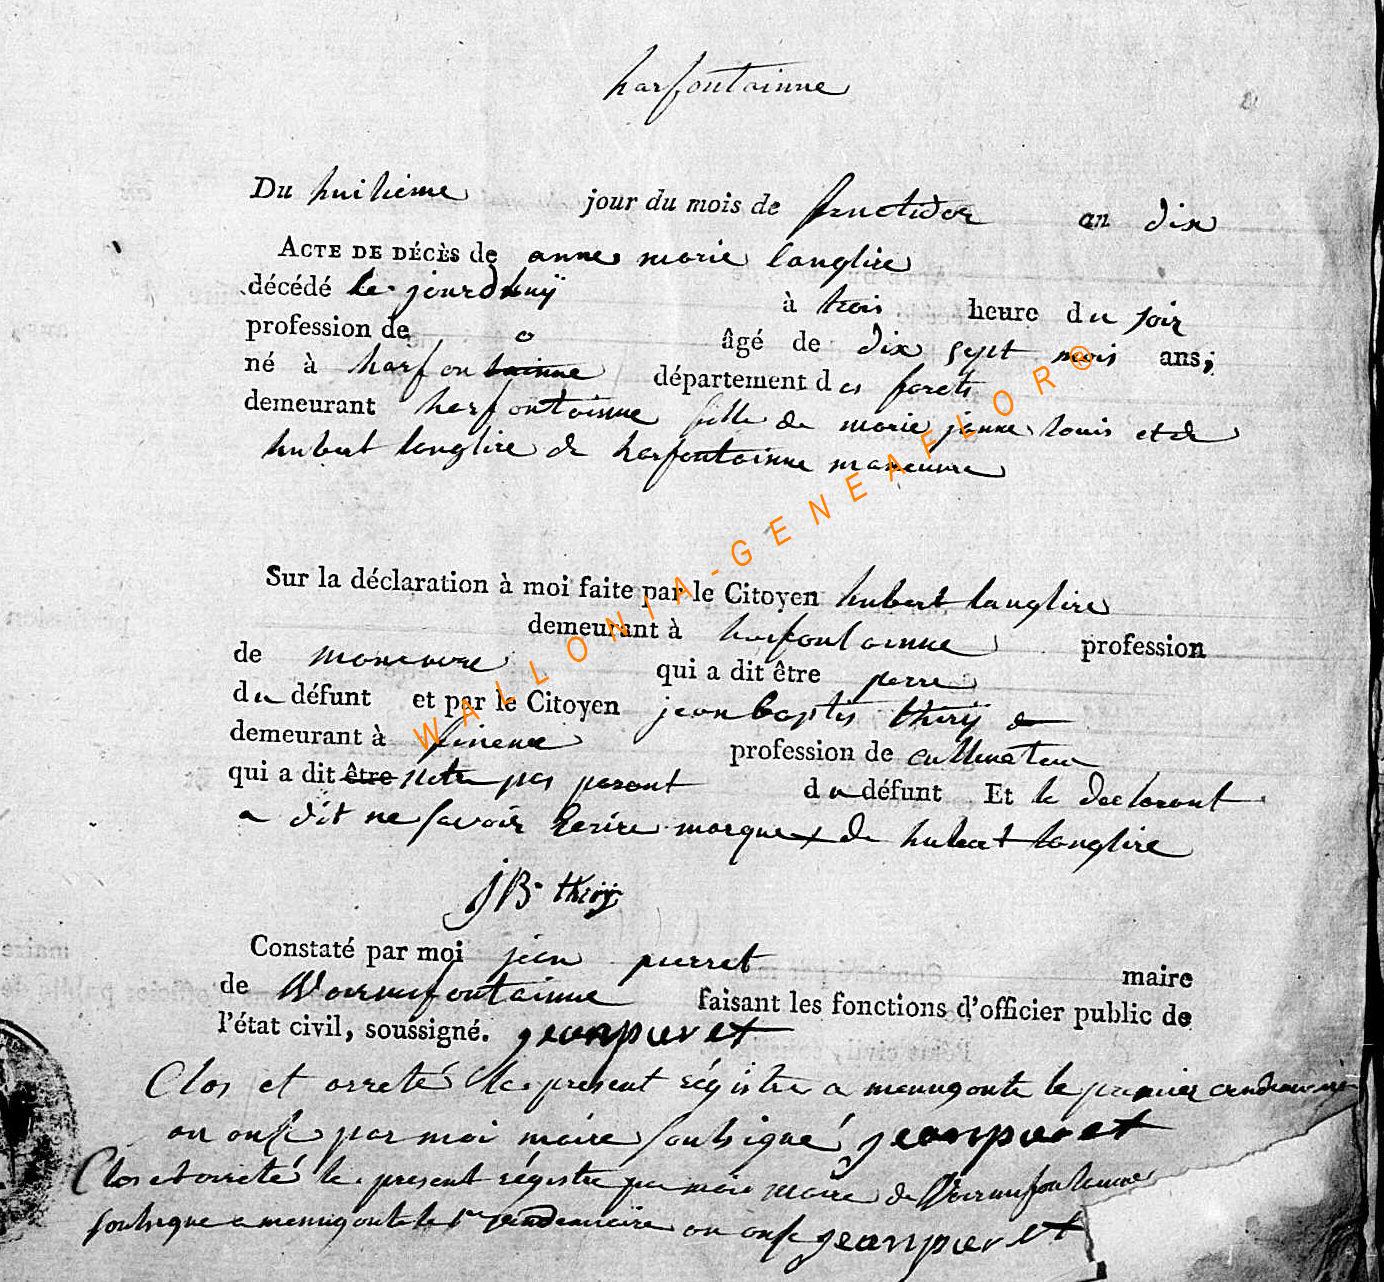 harfontainne
Du huitieme jour du mois de fructidor an dix
ACTE DE DÉCÈS de anne marie langlire
décédé le jourdhuÿ à trois heure du soir
profession de o âgé de dix sept mois ans;
né à harfontainne département des forets
demeurant harfontainne fille de marie janne louis et de
hubert langlire de harfontainne maneuvre
Sur la déclaration à moi faite par le Citoyen hubert langlire
demeurant à harfontainne profession
de maneuvre qui a dit être perre
du défunt et par le Citoyen jean baptis thirÿ
demeurant à fineux profession de cultivateur
qui a dit être netre pas parant du défunt Et le declarant
a dit ne savoir Ecrire marque + de hubert langlire
JB. thirÿ
Constaté par moi jean pierret maire
de faisant les fonctions d'officier public de
l'état civil, soussigné. jeanpierret
Clos et arreté le present régistre a menugoute le premier
an onse par moi maire soussigné jeanpierret
Clos et arreté le present régistre par moi maire de
soussigne a menugoute le 1er vendemiaire an onse jeanpierret
WALLONIA-GENEAFLOR®